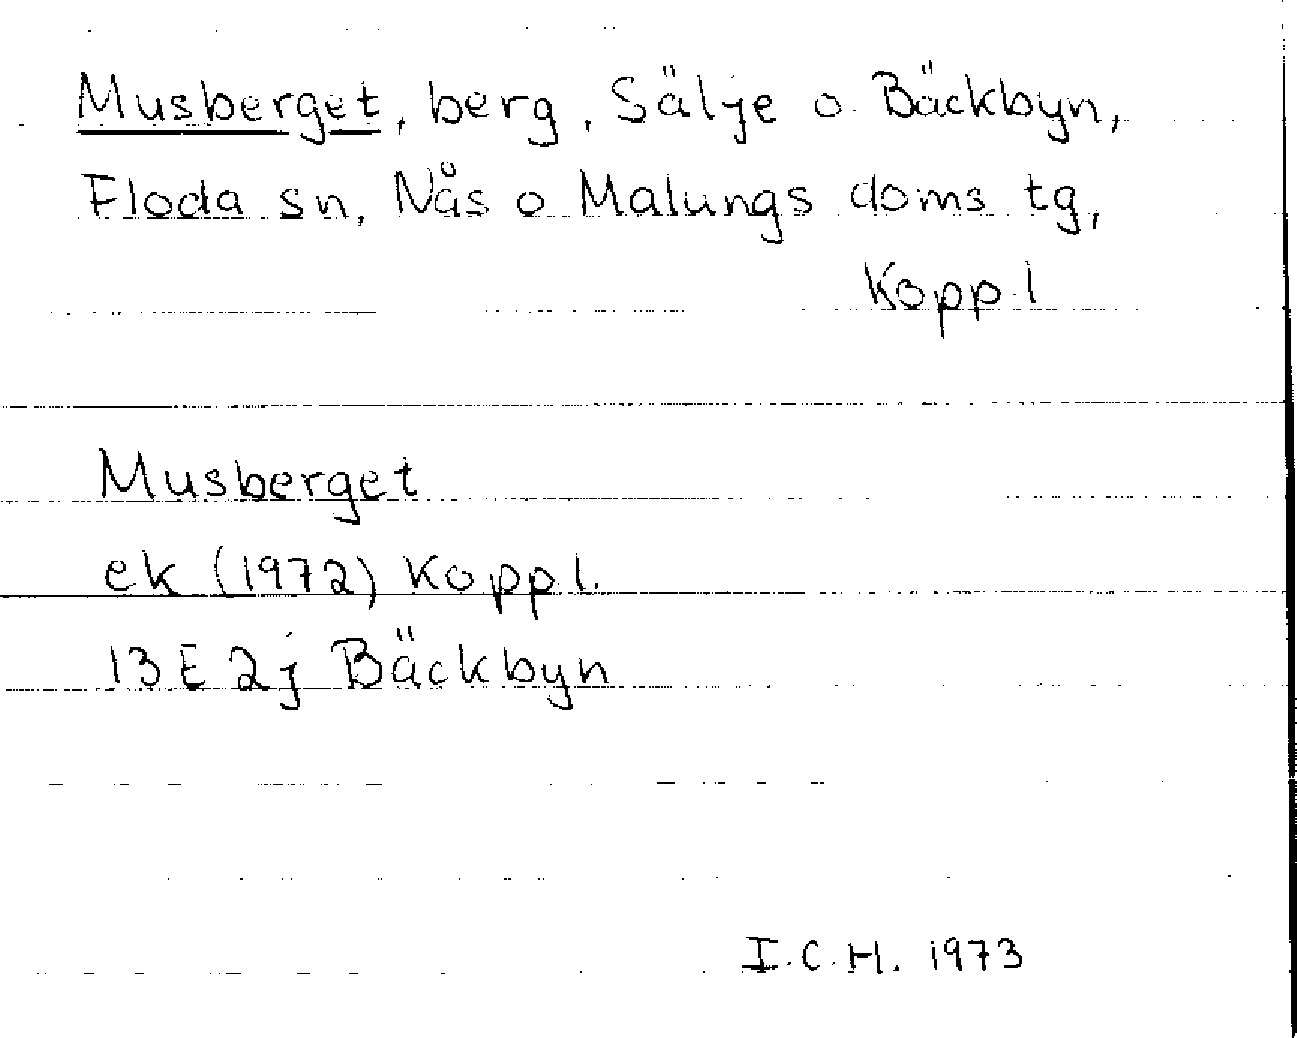 Musberget, berg, Sälje o Bäckbyn,
Floda sn, Nås o Malungs doms tg,
Kopp l
Musberget
ek (1972) Kopp l.
13 E 2j Bäckbyn
I.C.H. 1973